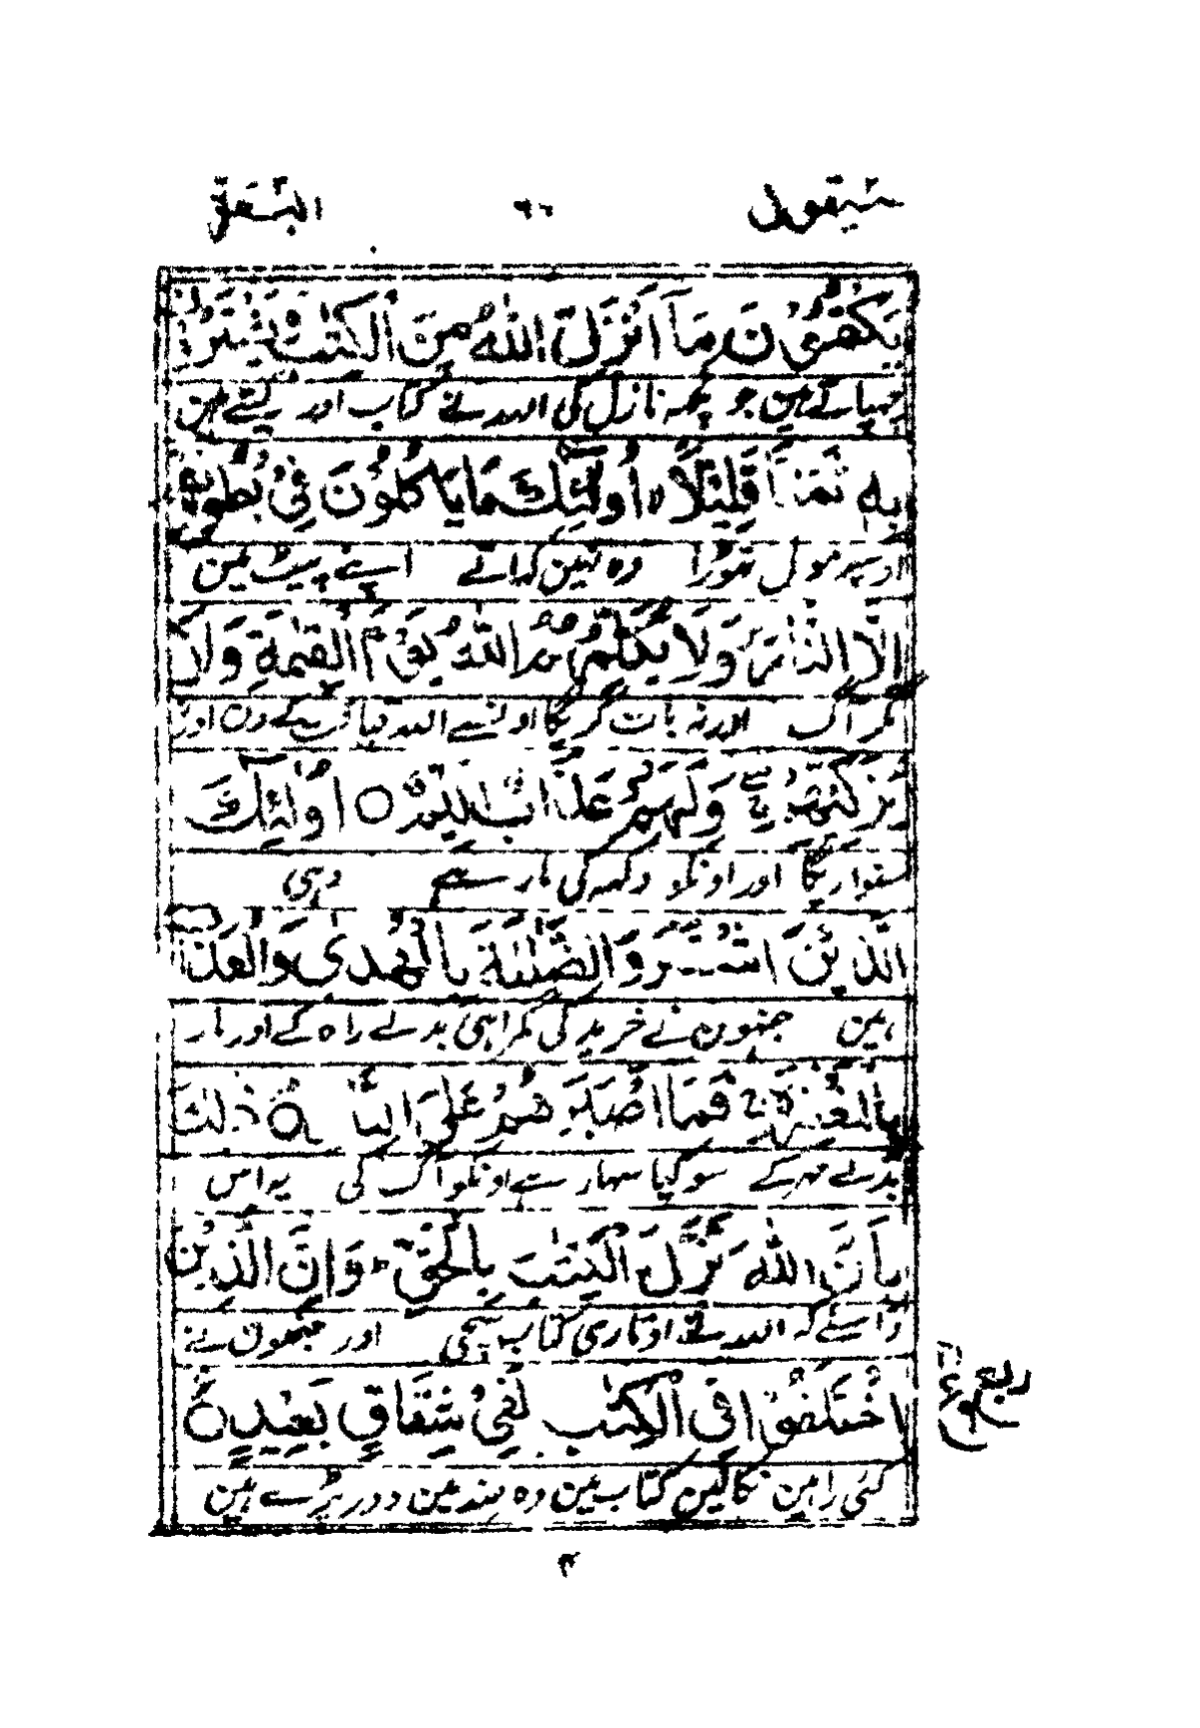 سيقول ٦٠ البقرة
يَكْتُمُوْنَ مَآ اَنْزَلَ اللّٰهُ مِنَ الْكِتٰبِ وَيَشْتَرُوْنَ
چھپاتے ہین جو کچھہ نازل کی اللہ نے کتاب اور لیتے ہین
بِهٖ ثَمَنًا قَلِيْلًا ۙ اُولٰٓئِكَ مَا يَاْكُلُوْنَ فِيْ بُطُوْنِهِمْ
اوسپر مول تھوڑا وہ نہین کھاتے اپنے پیٹ مین
اِلَّا النَّارَ وَلَا يُكَلِّمُهُمُ اللّٰهُ يَوْمَ الْقِيٰمَةِ وَلَا
مگر آگ اور نہ بات کریگا اونسے اللہ قیامت کے دن اور نہ
يُزَكِّيْهِمْ ۖ وَلَهُمْ عَذَابٌ اَلِيْمٌ ○ اُولٰٓئِكَ
سنواریگا اور اونکو دکھہ کی مار ہے وہی
الَّذِيْنَ اشْتَرَوُا الضَّلٰلَةَ بِالْهُدٰى وَالْعَذَابَ
ہین جنہون نے خرید کی گمراہی بدلے راہ کے اور مار
بِالْمَغْفِرَةِ ۚ فَمَآ اَصْبَرَهُمْ عَلَى النَّارِ ○ ذٰلِكَ
بدلے مہر کے سو کیا سہار ہے اونکو آگ کی یہ اس
بِاَنَّ اللّٰهَ نَزَّلَ الْكِتٰبَ بِالْحَقِّ ۭ وَاِنَّ الَّذِيْنَ
واسطے کہ اللہ نے اوتاری کتاب سچی اور جنھون نے
اخْتَلَفُوْا فِي الْكِتٰبِ لَفِيْ شِقَاقٍ بَعِيْدٍ ○ ع
ربع
کئی راہین نکالین کتاب مین وہ ضد مین دور پڑے ہین
٣